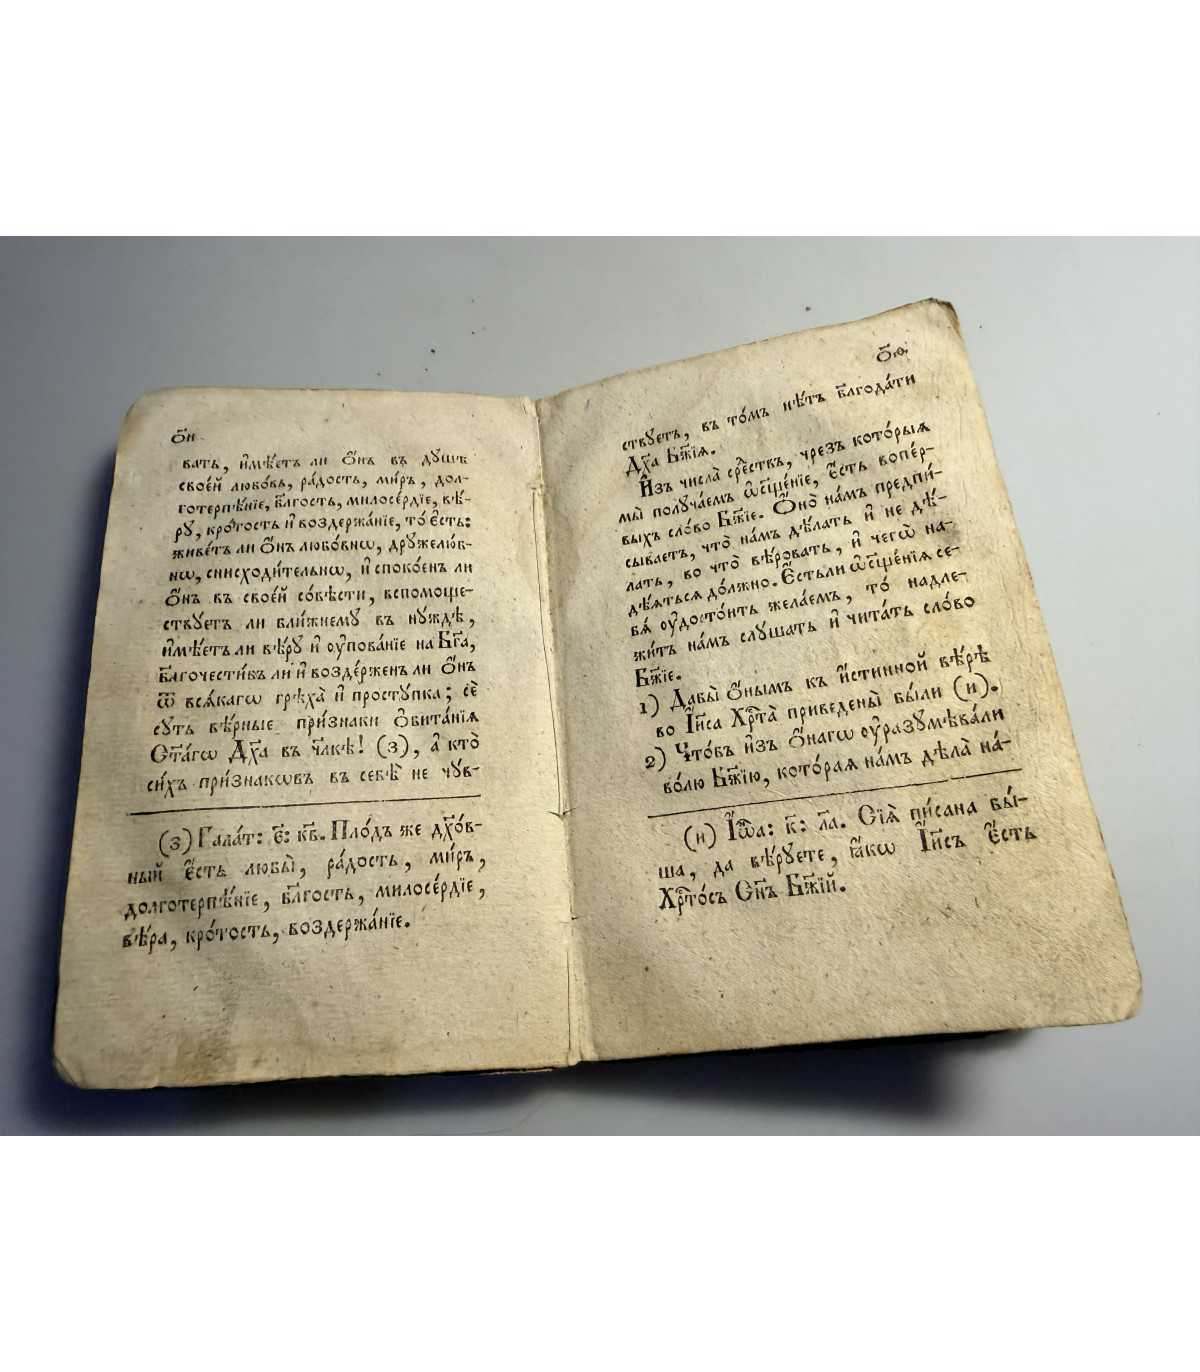 ѻ҃и
вать, и҆мѣ́етъ ли ѻ҆́нъ въ душѣ̀
свое́й любо́вь, ра́дость, ми́ръ, дол-
готерпѣ́нїе, бл҃гость, милосе́рдїе, вѣ́-
ру, кро́тость и҆ воздержа́нїе, то́ є҆сть:
живе́тъ ли ѻ҆́нъ любо́внѡ, дружелю́б-
нѡ, снисходи́тельнѡ, и҆ споко́енъ ли
ѻ҆́нъ въ свое́й со́вѣсти, вспомоще-
ствꙋетъ ли бли́жнемꙋ въ нꙋ́ждѣ,
и҆мѣ́етъ ли вѣ́рꙋ и҆ ᲂу҆пова́нїе на Бг҃а,
бл҃гочести́въ ли́ и҆ возде́рженъ ли ѻ҆́нъ
ѿ всѧ́кагѡ грѣха̀ и҆ просту́пка; сѐ
сꙋть вѣ́рные при́знаки ѻ҆бита́нїѧ
Ст҃а́гѡ Дх҃а въ чл҃кѣ! (з), а҆ кто̀
си́хъ при́знакѡвъ въ себѣ̀ не чꙋ́в-
(з) Гала́т: є҃: кв҃. Пло́дъ же дх҃о́в-
ный є҆́сть любы̀, ра́дость, ми́ръ,
долготерпѣ́нїе, бл҃гость, милосе́рдїе,
вѣ́ра, кро́тость, воздержа́нїе.
ѻ҃ѳ.
ствꙋетъ, въ то́мъ нѣ́тъ бл҃года́ти
Дх҃а Бж҃їѧ.
И҆зъ числа̀ сре́дствъ, чрезъ кото́рыѧ
мы̀ получа́емъ ѡ҆сщ҃е́нїе, є҆́сть вопе́р-
выхъ сло́во Бж҃їе. Ѻ҆но̀ на́мъ предпи́-
сываетъ, что̀ на́мъ дѣ́лать и҆ не дѣ́-
лать, во что̀ вѣ́ровать, и҆ чегѡ̀ на-
дѣ́ѧтьсѧ до́лжно. Є҆́стьли ѡ҆сщ҃е́нїѧ се-
бѧ̀ ᲂу҆досто́ить жела́емъ, то́ надле-
жи́тъ на́мъ слꙋ́шать и҆ чита́ть сло́во
Бж҃їе.
1) Дабы̀ ѻ҆́нымъ къ и҆́стинной вѣ́рѣ
во І҆и҃са Хрⷭ҇та̀ приведены̀ бы́ли (и).
2) Что́бъ и҆зъ ѻ҆́нагѡ ᲂу҆разꙋмѣва́ли
во́лю Бж҃їю, кото́рая на́мъ дѣ́ла на-
(и) І҆ѡ҃а: к҃: ла҃. Сїѧ̀ пи́сана бы́-
ша, да вѣ́рꙋете, ꙗ҆́кѡ І҆и҃съ є҆́сть
Хрⷭ҇то́съ Сн҃ъ Бж҃їй.